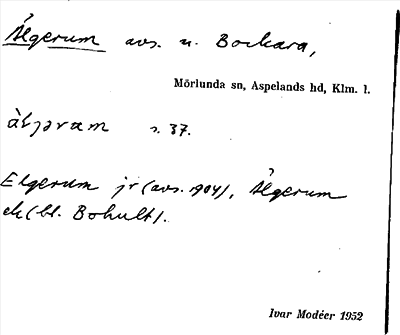 Älgerum avs. u. Bockara,
Mörlunda sn, Aspelands hd, Klm. l.
s. 37.
Elgerum jr (avs. 1904), Älgerum
ek (bl. Bohult).
Ivar Modéer 1952